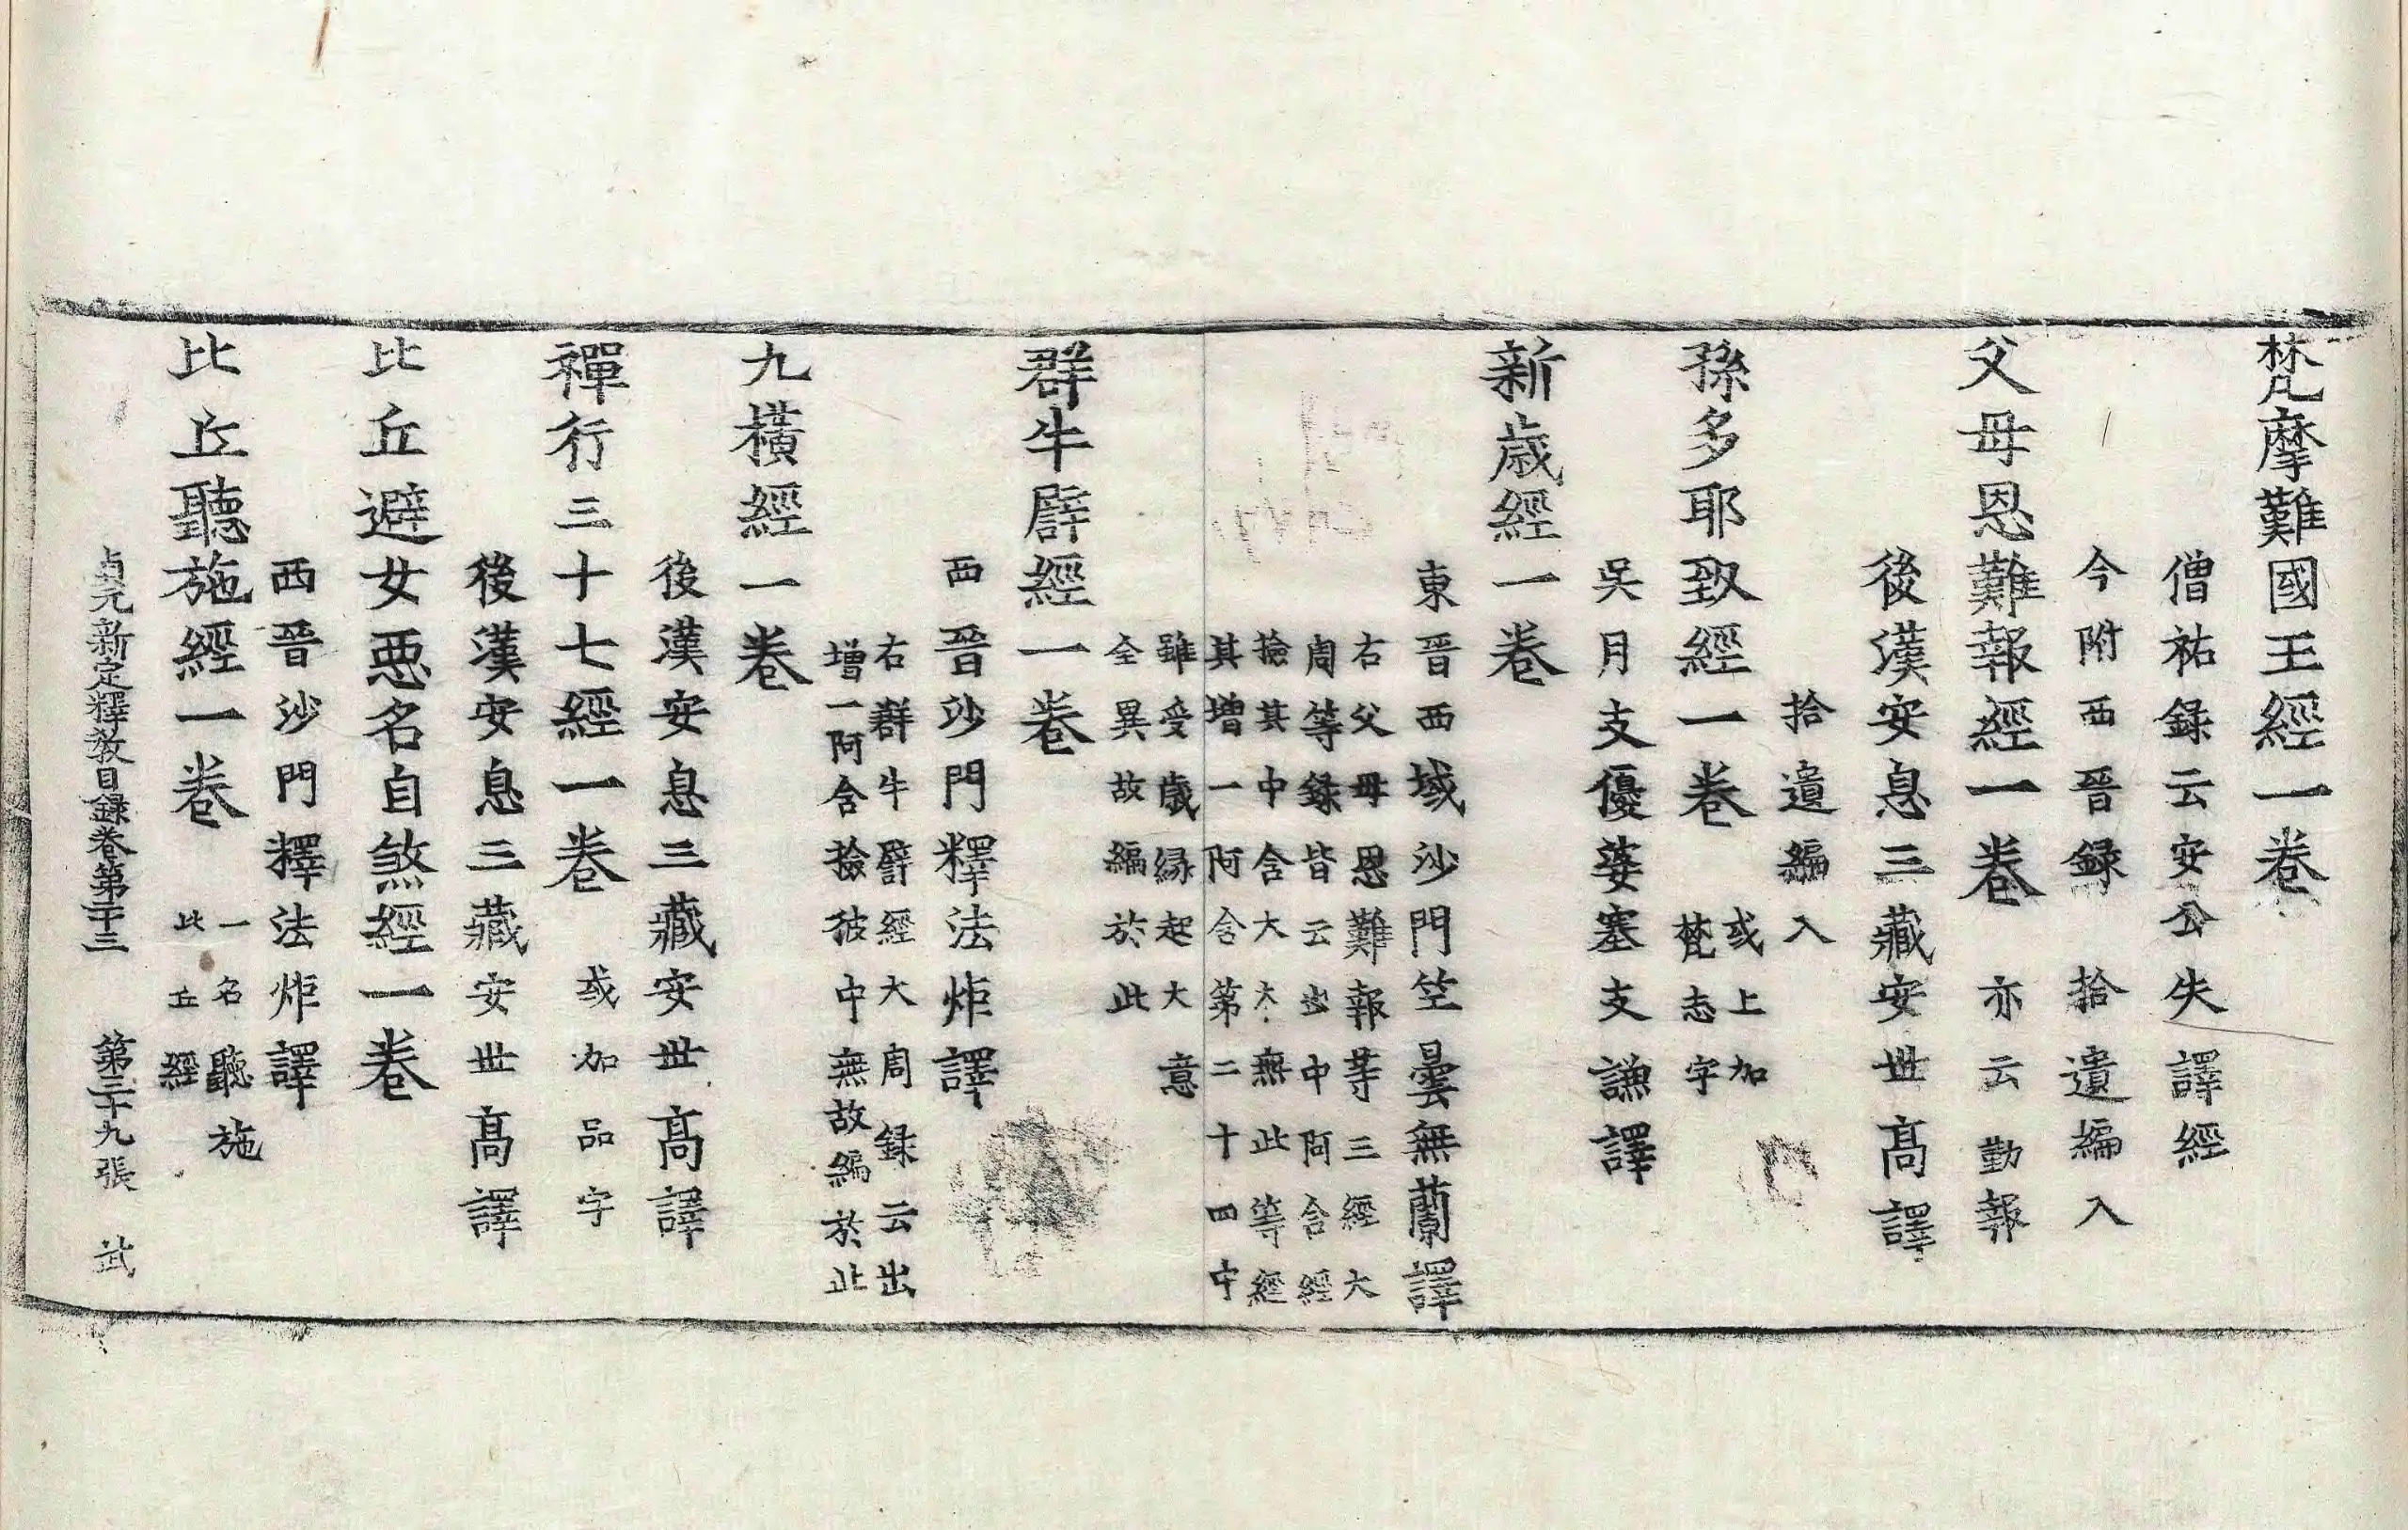 梵摩難國王經一卷
僧祐録云安公失譯經
今附西晉録 拾遺編入
父母恩難報經一卷 亦云勤報
後漢安息三藏安世高譯
拾遺編入
孫多耶致經一卷 或上加
梵志字
吳月支優婆塞支謙譯
新歳經一卷
東晉西域沙門竺曇無蘭譯
右父母恩難報等三經大
周等録皆云出中阿含經
撿其中含大本無此等經
其增一阿含第二十四中
雖受歳縁起大意
全異故編於此
群牛譬經一卷
西晉沙門釋法炬譯
右群牛譬經大周録云出
增一阿含撿彼中無故編於此
九橫經一卷
後漢安息三藏安世髙譯
禪行三十七經一卷 或加品字
後漢安息三藏安世髙譯
比丘避女惡名自煞經一卷
西晉沙門釋法炬譯
比丘聽施經一卷 一名聽施
比丘經
貞元新定釋教目録卷第二十三 第三十九張 武